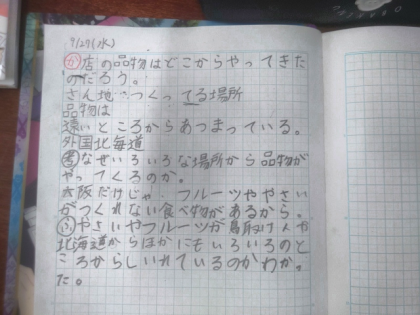 9/27(水)
か店の品物はどこからやってきた
のだろう。
さん地:つくってる場所
品物は
遠いところからあつまっている。
外国北海道
考なぜいろいろな場所から品物が
やってくるのか。
大阪だけじゃ、フルーツややさい
がつくれない食べ物があるから。
ふやさいやフルーツが鳥取けんや
北海道からほかにもいろいろのと
ころからしいれているのかわかっ
た。